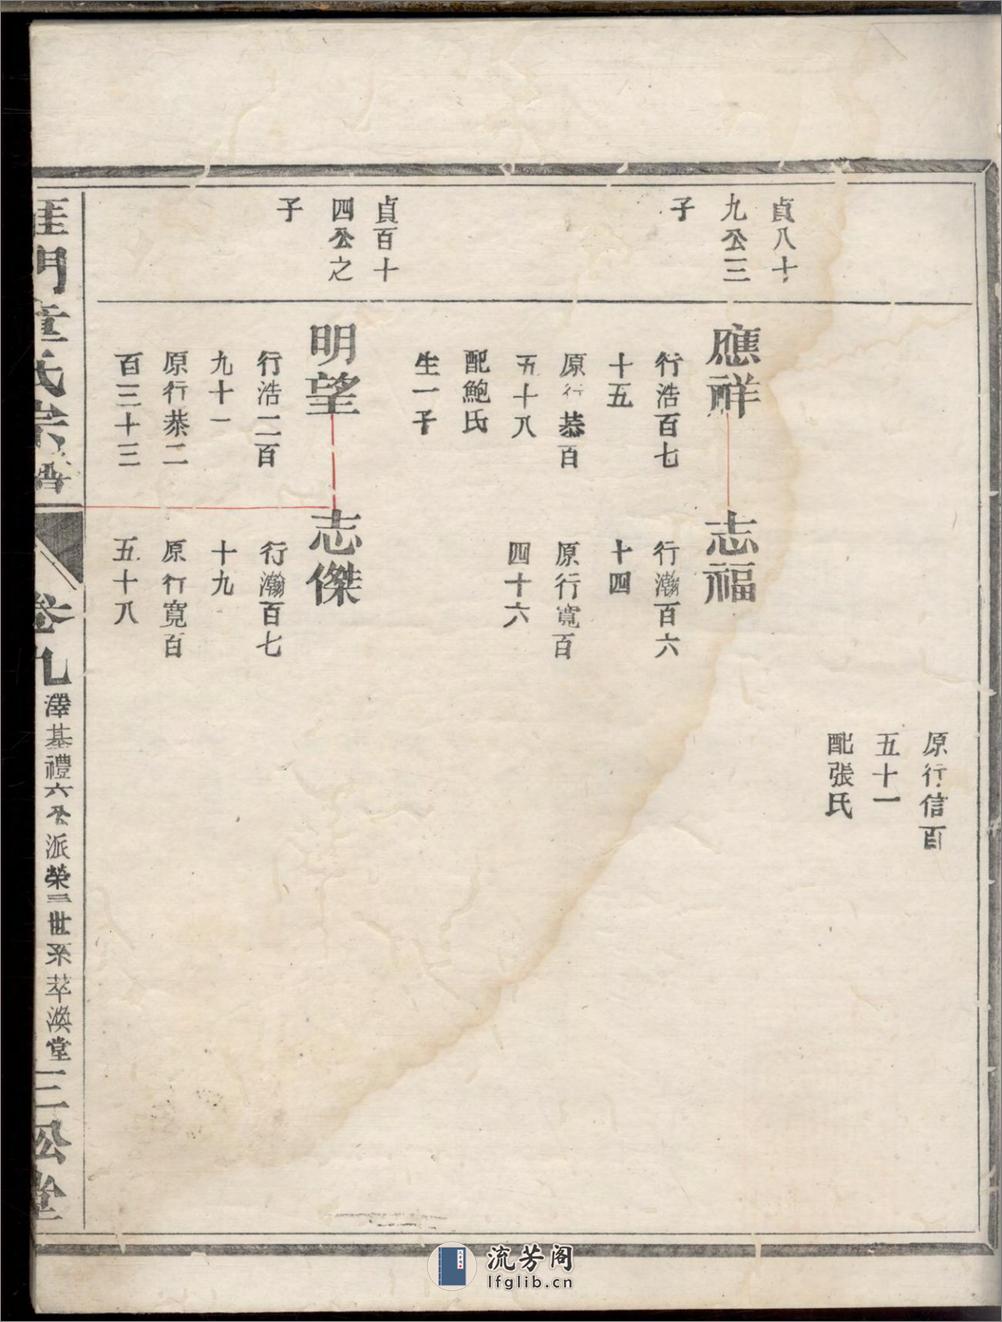 原行信百
五十一
配張氏
貞八十
九公三
子
應祥
行浩百七
十五
原行恭百
五十八
配鮑氏
生一子
志福
行瀚百六
十四
原行寬百
四十六
貞百十
四公之
子
明望
行浩二百
九十一
原行恭二
百三十三
志傑
行瀚百七
十九
原行寬百
五十八
童氏宗譜
卷九
澤基禮六公派榮三世系萃渙堂
三松堂
流芳阁
lfglib.cn